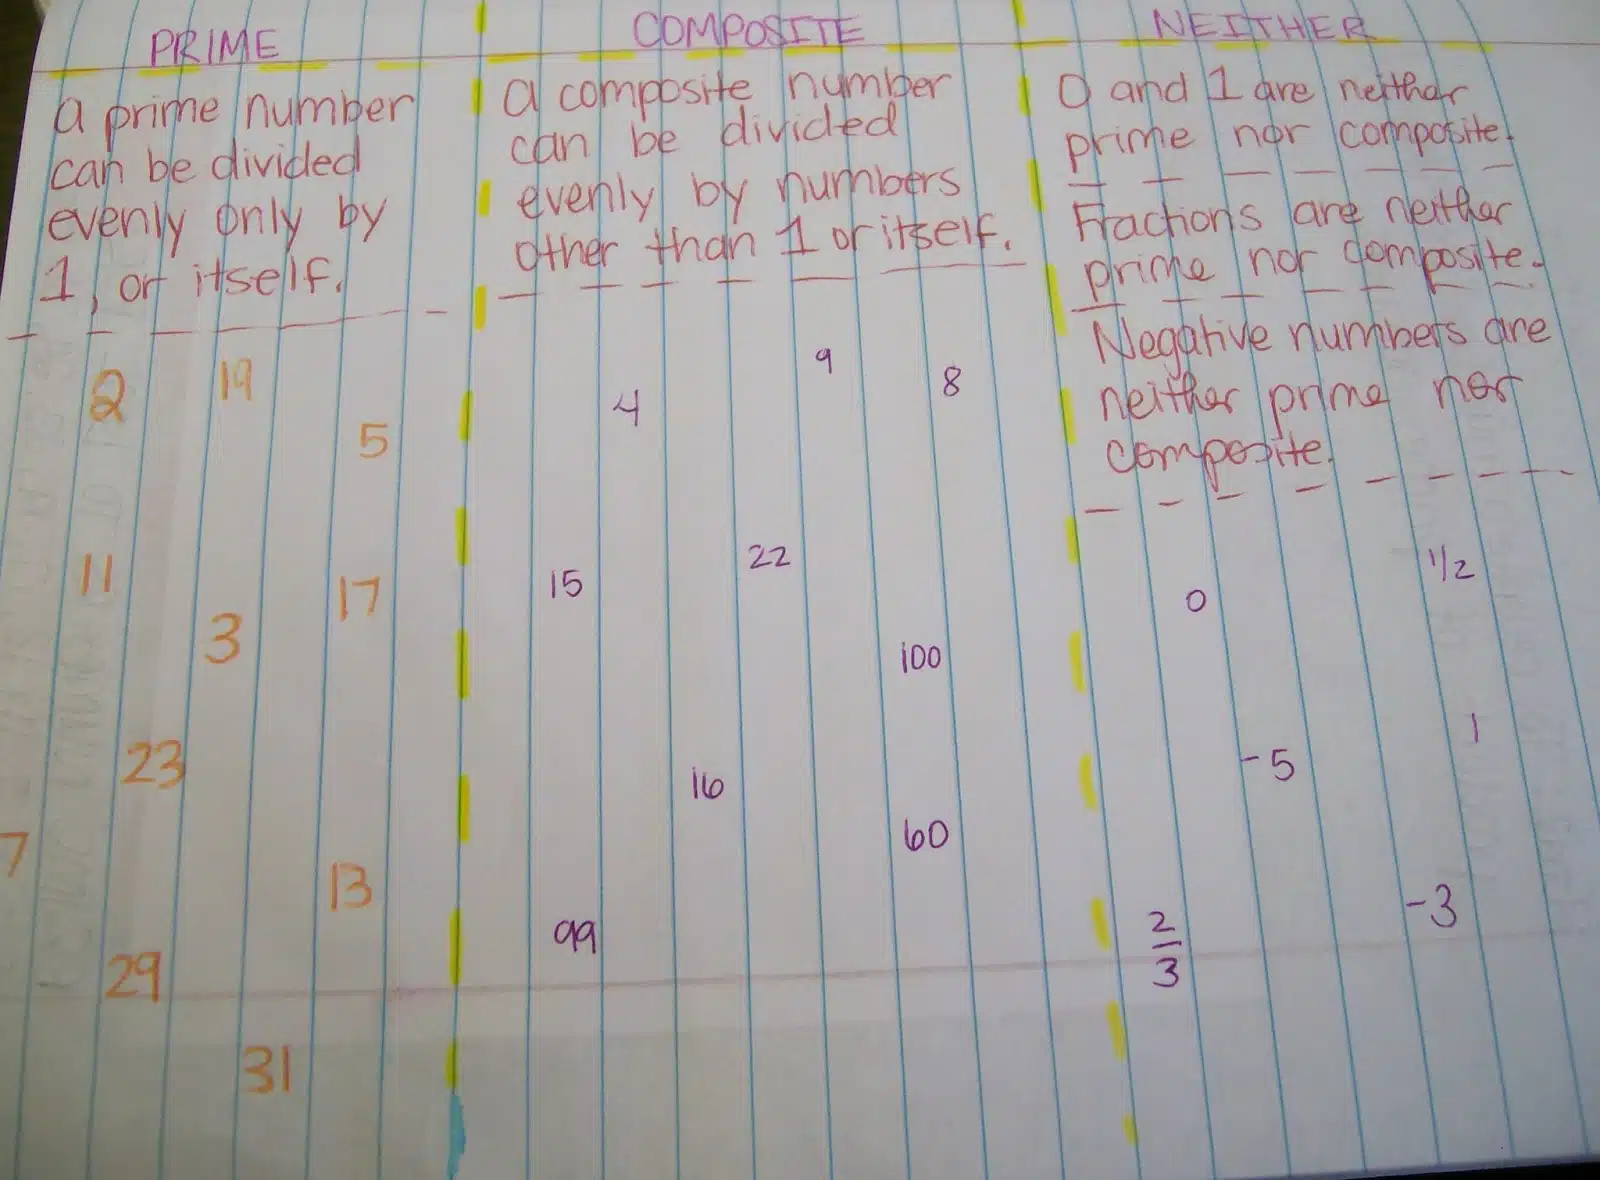 PRIME
a prime number
can be divided
evenly only by
1, or itself.
2
19
5
11
17
3
23
7
13
29
31
COMPOSITE
a composite number
can be divided
evenly by numbers
other than 1 or itself.
9
8
4
22
15
100
16
60
99
NEITHER
0 and 1 are neither
prime nor composite.
Fractions are neither
prime nor composite.
Negative numbers are
neither prime nor
composite.
1/2
0
1
-5
-3
2/3